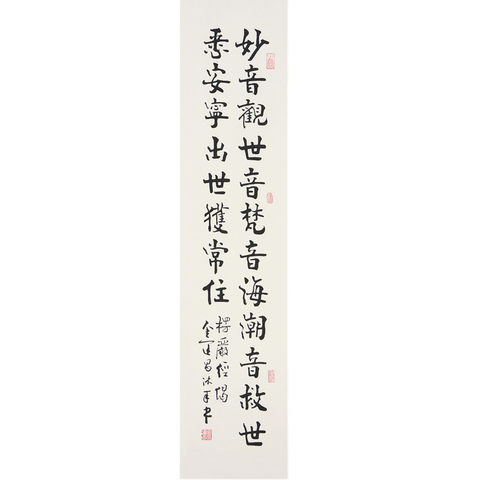 妙音觀世音梵音海潮音救世
悉安寧出世獲常住
楞嚴經偈
沐手書